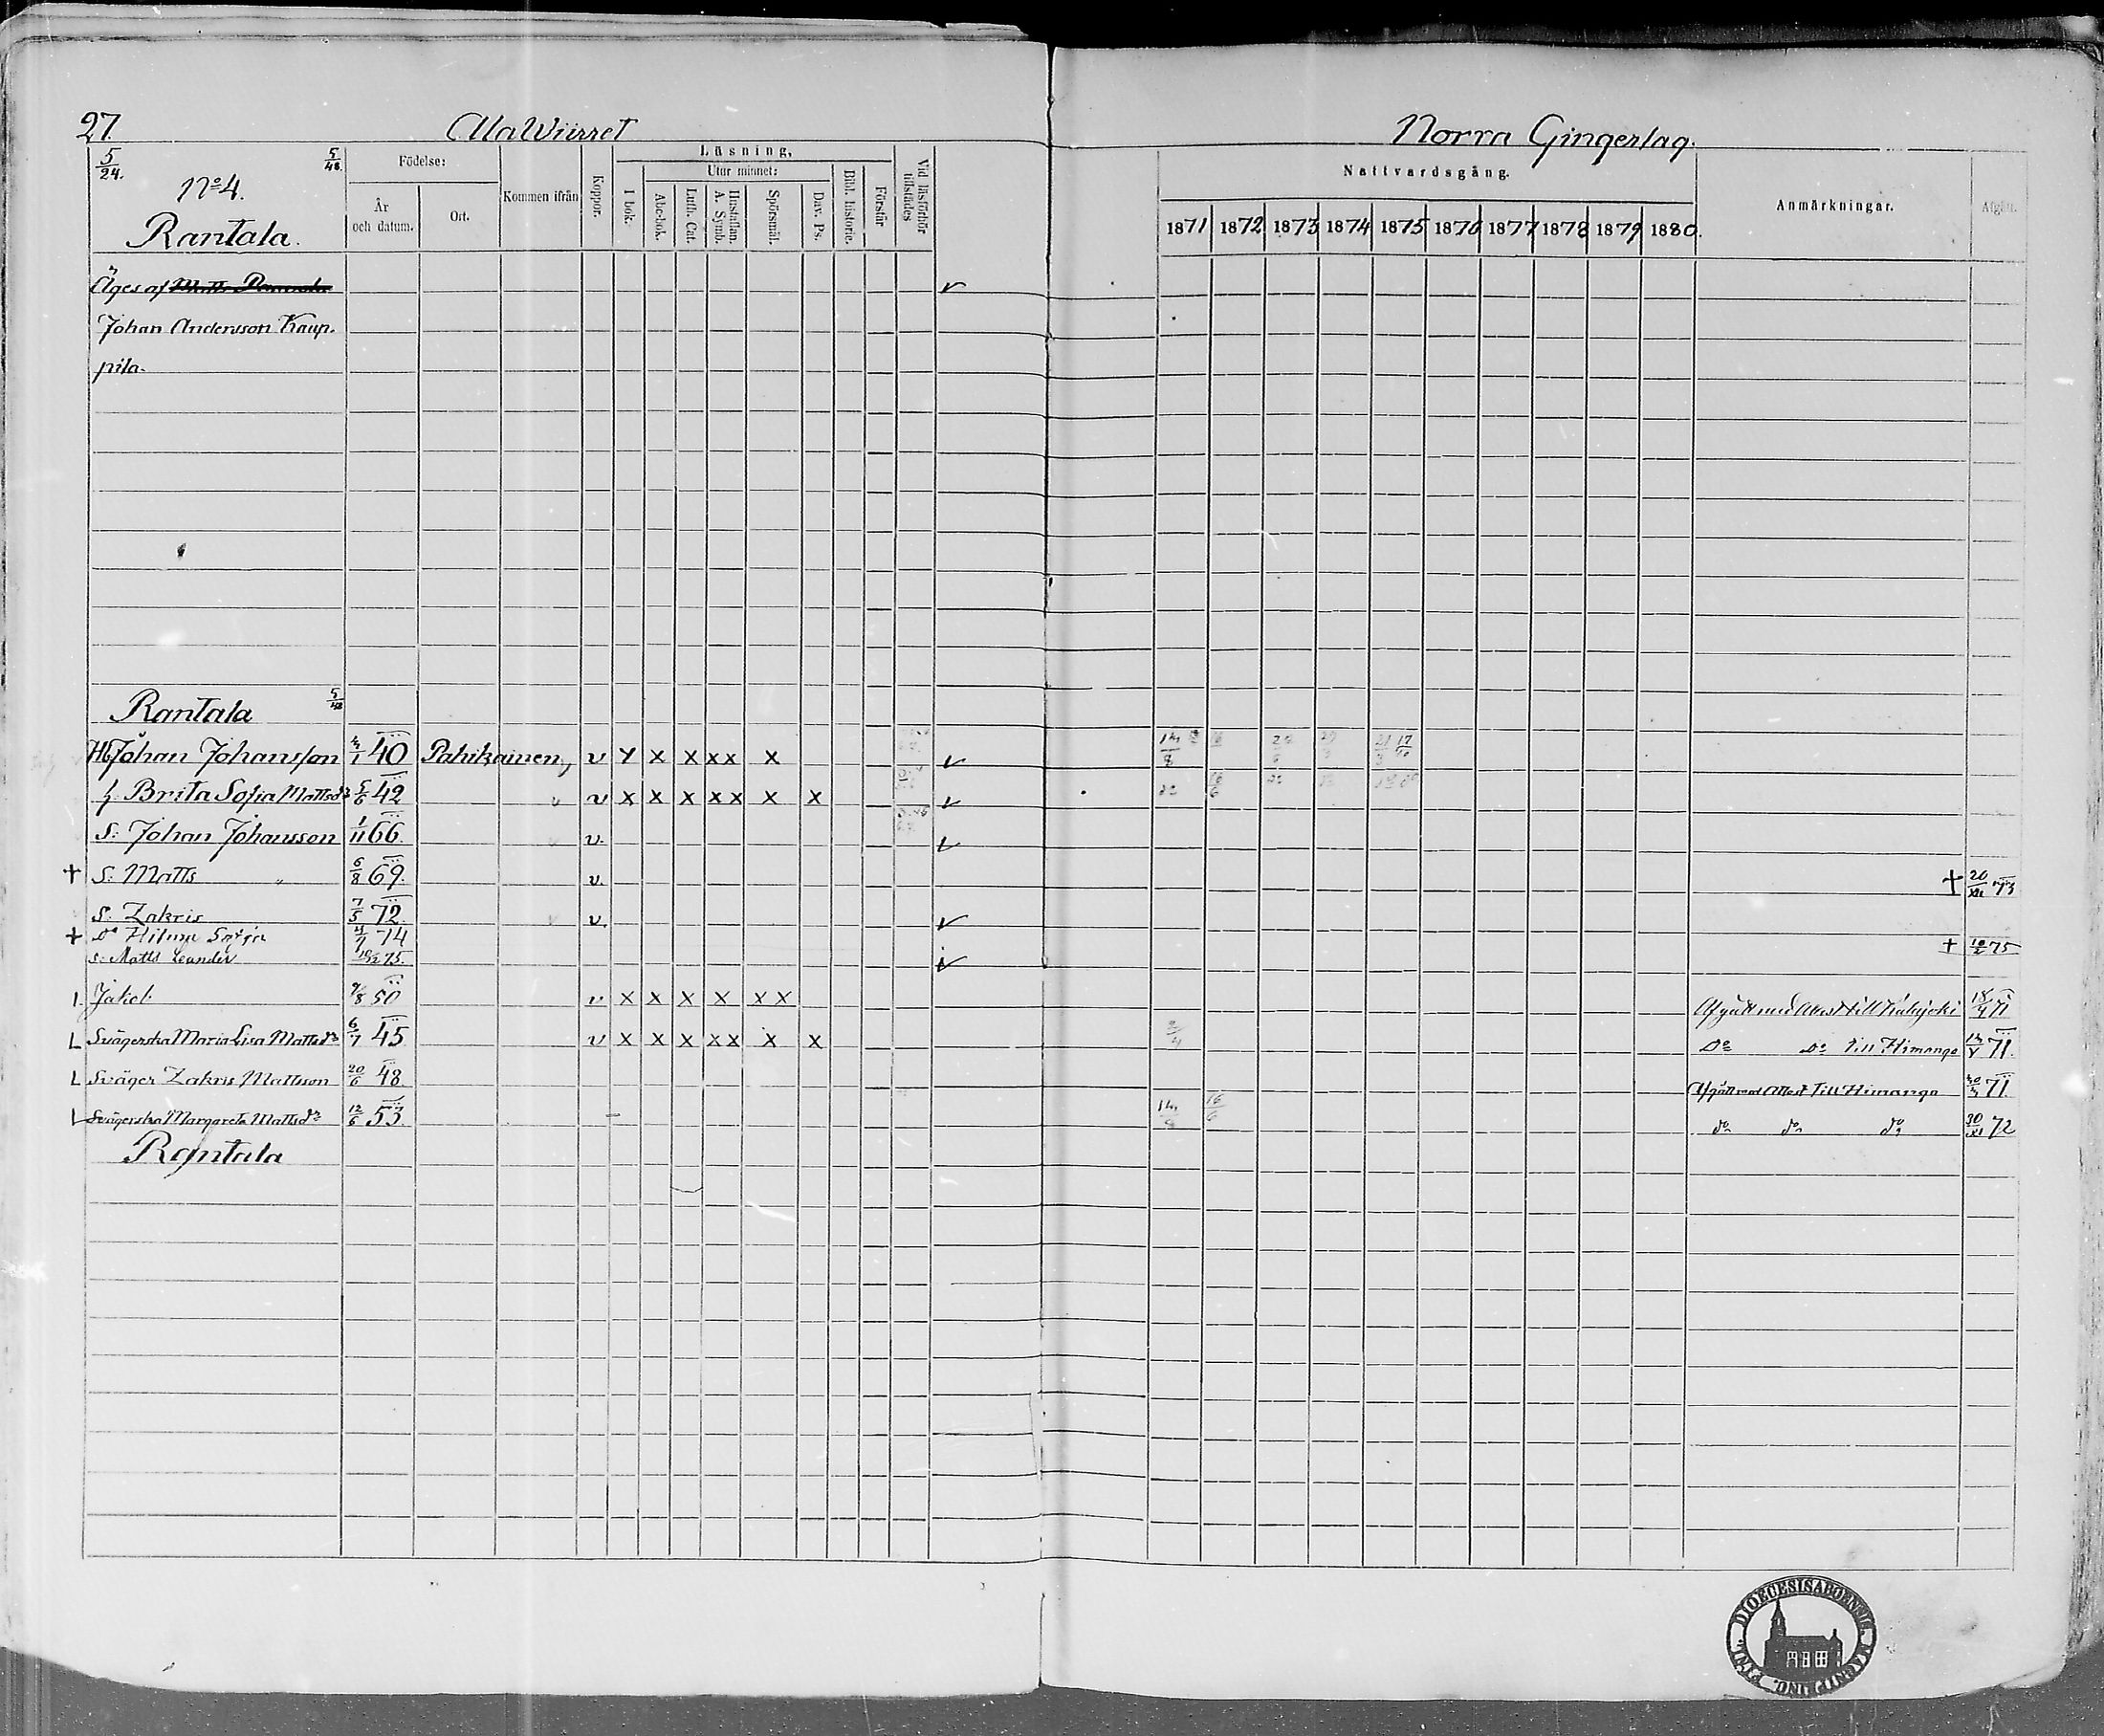 27.
AlaWiirret
Norra Gingerlag.
5/24.
5/48.
No 4.
Rantala.
Födelse:
År och datum.
Ort.
Kommen ifrån
Koppor.
Läsning,
I bok.
Utur minnet:
Abc-bok.
Luth. Cat.
Hustaflan. A. Symb.
Spörsmål.
Dav. Ps.
Bibl. historie.
Förstår
Vid läsförhör tillstädes
Nattvardsgång.
1871 1872 1873 1874 1875 1876 1877 1878 1879 1880.
Anmärkningar.
Afgått.
Äges af
Johan Andersson Kaup-
pila.
Rantala 5/48
Hb Johan Johansson 4/1 40 Pahikainen, v x x x xx x
h. Brita Sofia Mattsdr 5/6 42 v x x x xx x x
S: Johan Johansson 1/11 66. v.
+ S: Matts " 6/8 69. v. + 20/XII 73
S: Zakris 7/5 72. v.
+ Dr Hilma Sofia 74 + 10/2 75
s: Matts Leander 10/12 75.
L Jakob 9/8 50 v x x x x xx Afgått med Attest till 18/4 71
L Svägerska Maria Lisa Mattsdr 6/7 45 v x x x xx x x 2/4 Do Do till Himango 14/V 71.
L Svåger Zakris Mattsson 20/6 48 Afgått med Attest till Himango 71.
L Svägerska Margareta Mattsdr 12/6 53. 14/8 16/6 do do do 30/XI 72
Rantala
DIOECESIS ABOENSIS MAGNI PRINC. FINL.